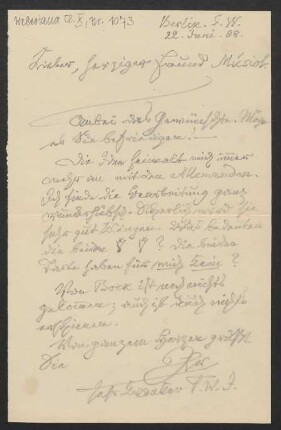 Weberiana Cl. X, Nr. 1073
Berlin. S. W.
22. Juni 88.
Lieber, herziger Freund Musiol.
Anbei das Gewünschte. Möge
es Sie befriedigen! —
Die Idee heimelt mich immer
mehr an mit den Allemanden.
Ich finde die Bearbeitung ganz
wunderhübsch. Sicherlich wird sie
sehr gut klingen. Was bedeuten
die beiden ? ? die beiden
Takte haben für mich kein ?
Von Bock ist noch nichts
gekommen; auch ist noch nichts
erschienen.
Von ganzem Herzen grüßt
Sie
Ihr